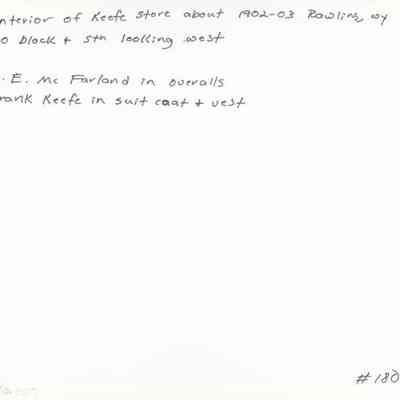 nterior of Keefe Store about 1902-03 Rawlins, wy
0 block + 5th looking west
. E. Mc Farland in overalls
rank Keefe in suit coat + vest
#180